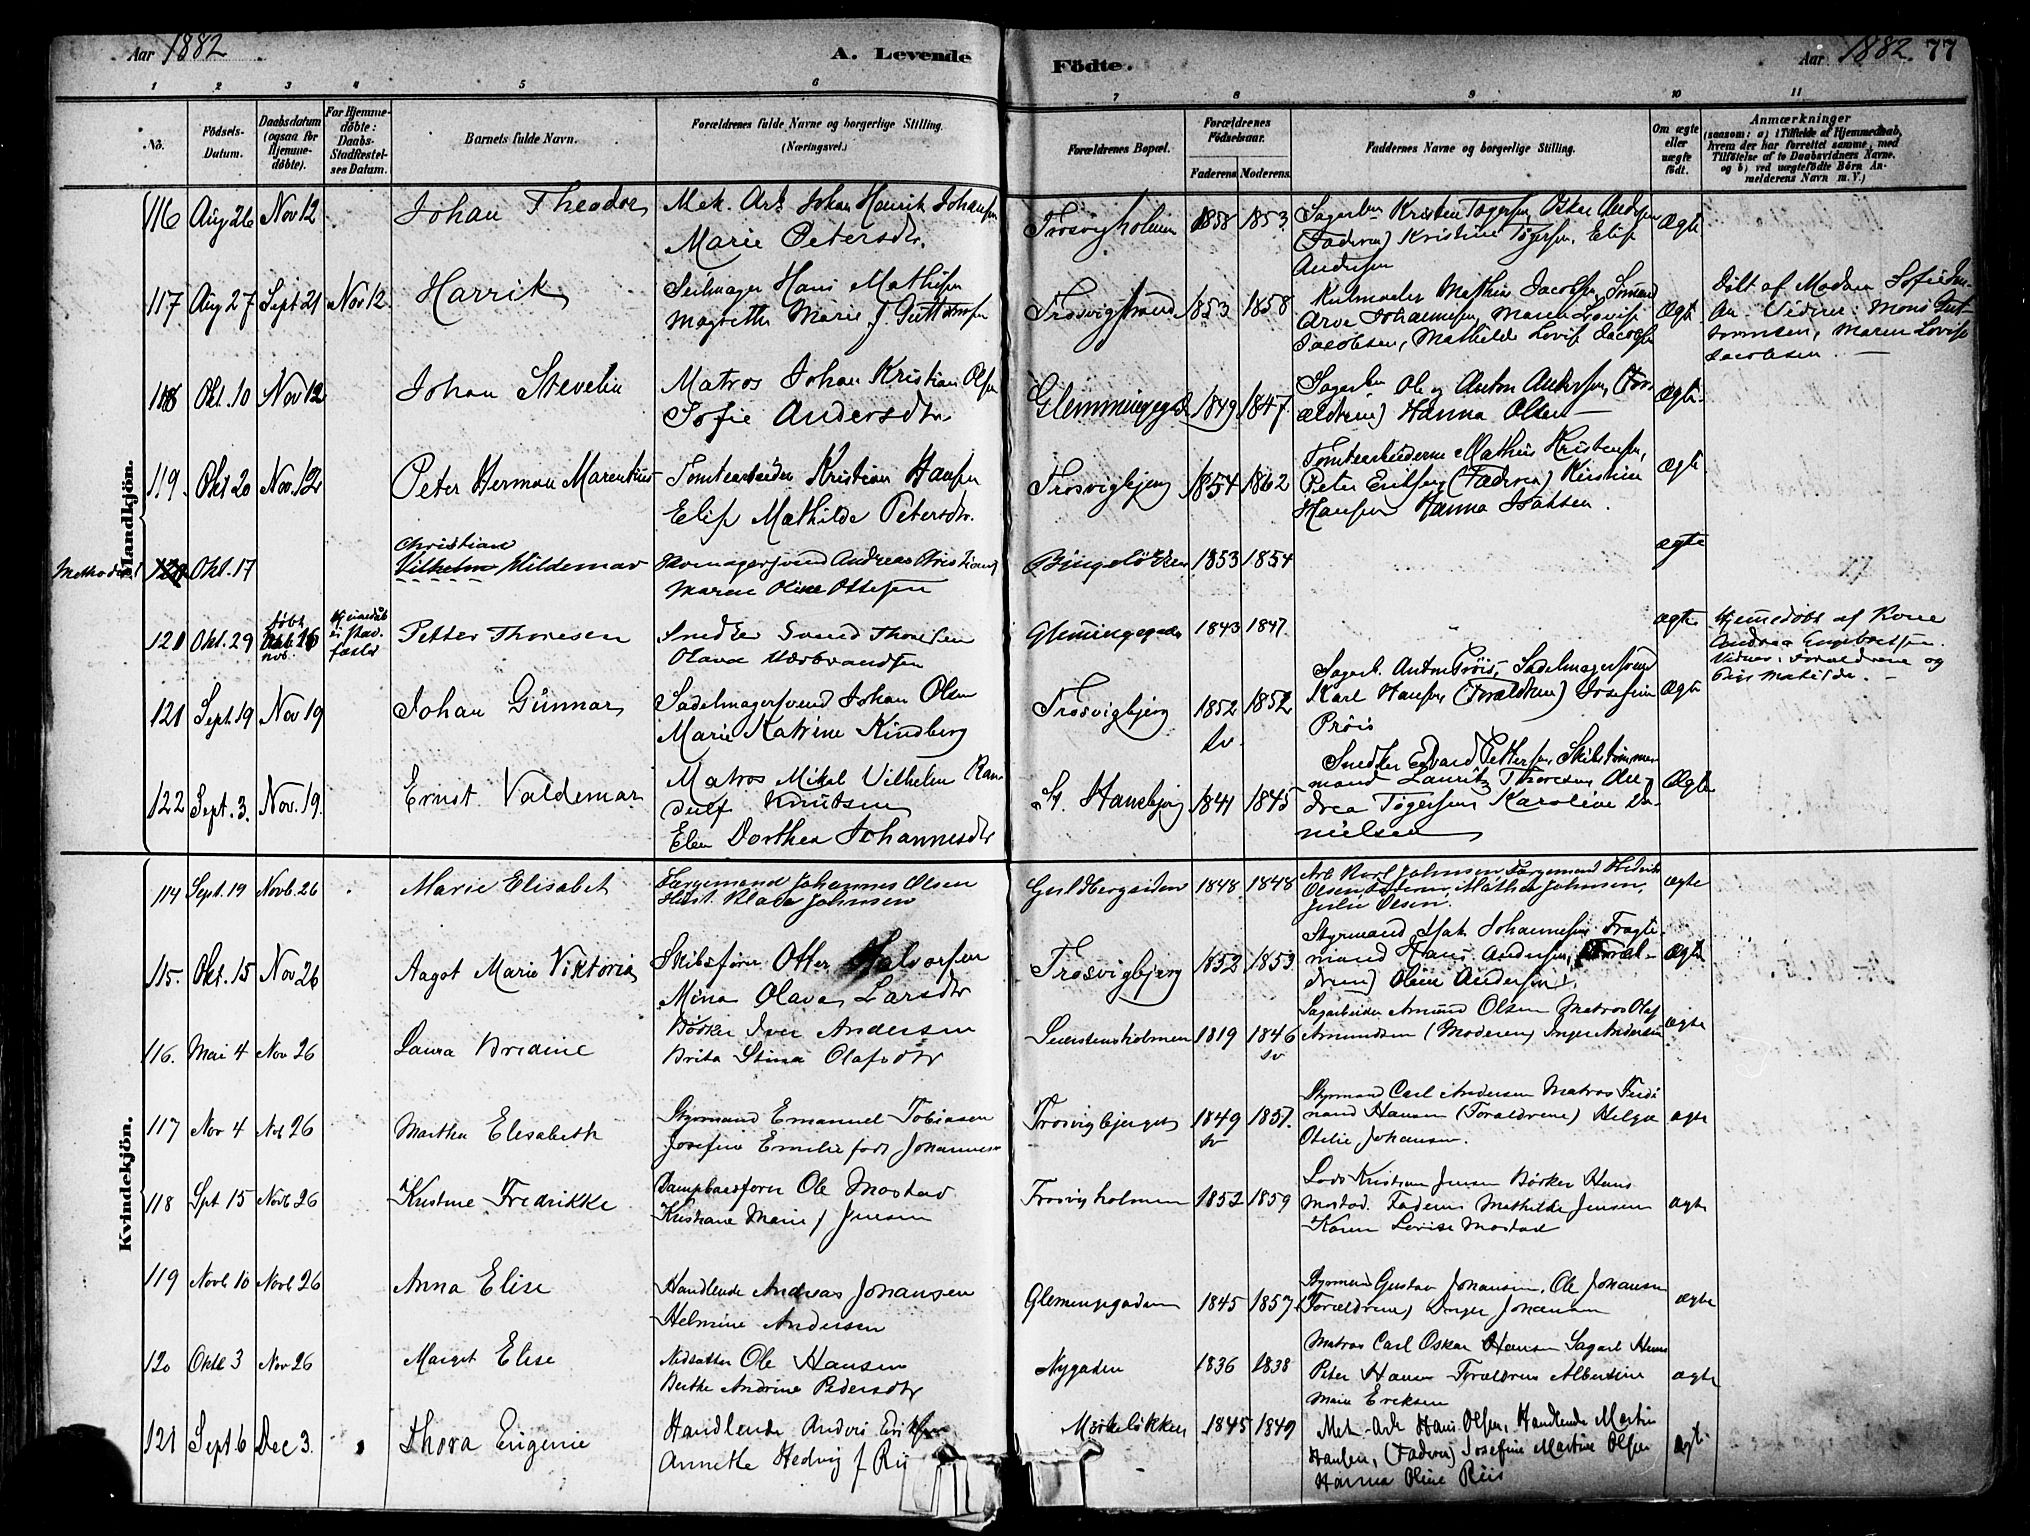 Aar 1882
A. Levende Födte.
Aar 1882. 77
1 2 3 4 5 6 7 8 9 10 11
No.
Födsels-Datum.
Daabsdatum (ogsaa for Hjemme-döbte).
For Hjemme-döbte: Daabs-Stadfæstelses Datum.
Barnets fulde Navn.
Forældrenes fulde Navne og borgerlige Stilling. (Næringsvei.)
Forældrenes Bopæl.
Forældrenes Födselsaar.
Faderens Moderens
Faddernes Navne og borgerlige Stilling.
Om ægte eller uægte födt.
Anmærkninger
(saasom: a) i Tilfælde af Hjemmedaab, hvem der har forrettet samme, med Tilföielse af to Daabsvidners Navne. og b) ved uægtefödte Börn Anmelderens Navn m. V.)
Mandkjön.
116 Aug 26 Nov 12 Johan Theodor
Mek. Arb Johan Henrik Johansen
Marie Petersdtr.
Trosvigholmen 1858 1853
Kristen Tøgersen, Oskar Andersen
(Faderen) Kristine Tøgersen, Elise
Andersen
Ægte
117 Aug 27 Sept 21 Nov 12 Harrik
Seilmager Hans Mathisen
Magrethe Marie f. Guttormsen
Trosvigstrand 1853 1858
Mathias Jacobsen, Tømmerm
Johannesen, Maren Lovise
Jacobsen, Mathilde Lovise Jacobsen
Ægte
Døbt af Madam Sofie
Vidner: Mons Guttormsen, Maren Lovise
Jacobsen. —
118 Okt. 10 Nov 12 Johan Stevelin
Matros Johan Kristian Olsen
Sofie Andersdtr.
Glemmingegad 1849 1847
Sagarbei Ole og Anton Andersen, (Forældrene) Hanna Olsen —
Ægte
119. Okt 20 Nov. 12 Peter Herman Marentius
Tomtearbeider Kristian Hansen
Elise Mathilde Petersdtr.
Trosvigbjerg 1854 1862
Tomtearbeiderne Mathias Kristensen,
Peter Eriksen, (Faderen) Kirstine
Hansen Hanna Isaksen.
Ægte
Methodist 120 Okt. 17
Christian
Vilhelm Hildemar
Andreas Christians
Maren Oline Ottesen
Bingeløkken 1853 1854
ægte
120 Okt. 29 døbt Nvb. 16
Petter Thoresen
Snedker Svend Thoresen
Olava Udsbrandsen
Glemmingegade 1843 1847
ægte
Hjemmedøbt af Kone
Andrea Engebretsen.
Vidner: Forældrene og
Matilde. —
121 Sept. 19 Nov 19 Johan Gunnar
Sadelmagersvend Johan Olsen
Marie Katrine Kindberg
Trosvigbjerg 1852 sv. 1852
Sagarb. Anton Prøis, Sadelmagersvend
Karl Hansen, (Forældrene) Josefine
Prøis
Ægte
122 Sept. 3. Nov. 19. Ernst Valdemar
Matros Mikal Vilhelm Ran-
dulf Knutsen
Elen Dorthea Johannesdtr
St. Hansbjerg 1841 1845
Snedker Edvard Pettersen, Skibstømmer-
mand Laurits Thoresen, An-
drea Tøgersen, Karoline Da-
nielsen
Ægte
Kvindekjön.
114 Sept. 19 Novb. 26 Marie Elisabet
Færgemand Johannes Olsen
Hust. Klara Johnsen
Guldbergsiden 1848 1848
Arb Karl Johnsen Færgemand Fredrik
Olsen, Faderen, Mathea Johnsen,
Julie Olsen.
ægte
115. Okt. 15 Nov 26 Aagot Marie Viktoria
Skibsfører Otter Halvorsen
Mina Olava Larsdtr
Trosvigbjerg 1852 1853.
Styrmand Isak Johannesen, Fragte-
mand Hans Andersen, (Foræl-
drene) Oline Andersen.
Ægte
116. Mai 4 Nov 26 Laura Bredine
Bødker Iver Andersen
Brita Stina Olafsdtr
Sieverstensholmen 1819 1846 sv
Sagarbeider Amund Olsen Matros Olaf
Amundsen (Moderen) Inger Andersen
ægte
117 Nov 4 Nov 26 Martha Elisabeth
Styrmand Emanuel Tobiasen
Josefine Emilie født Johannesen
Trosvigbjerget 1849 sv 1857.
Styrmand Carl Andersen Matros Ferdi
nand Hansen (Forældrene) Helga
Otilie Johansen.
ægte
118 Spt 15 Novb 26 Kristine Fredrikke
Dampbaadfører Ole Mostad
Kristiane Marie f Jensen
Trosvigholmen 1852 1859
Lods Kristian Jensen Bødker Hans
Mostad. Faderen Mathilde Jensen
Karen Lovise Mostad
ægte
119 Novb 10 Novb 26 Anna Elise
Handlende Andreas Johansen
Helmine Andersen
Glemmingegaden 1845 1857
Styrmand Gustav Johansen, Ole Johansen
(Forældrene) Inger Johansen
ægte
120 Oktb 3 Nov 26 Margit Elise
Ole Hansen
Berthe Andrine Pedersdtr
Nygaden 1836 1838
Matros Carl Oskar Hansen Sagarb Hans
Peter Hansen Forældrene Albertine
Marie Eriksen
ægte
121 Sept 6 Dec 3. Thora Eugenie
Handlende Anders Eriksen
Annette Hedvig f Riis
Mørkeløkken 1845 1849
Mek. Arb Hans Olsen, Handlende Martin
Hansen, (Faderen) Josefine Martine Olsen
Hanna Oline Riis
ægte